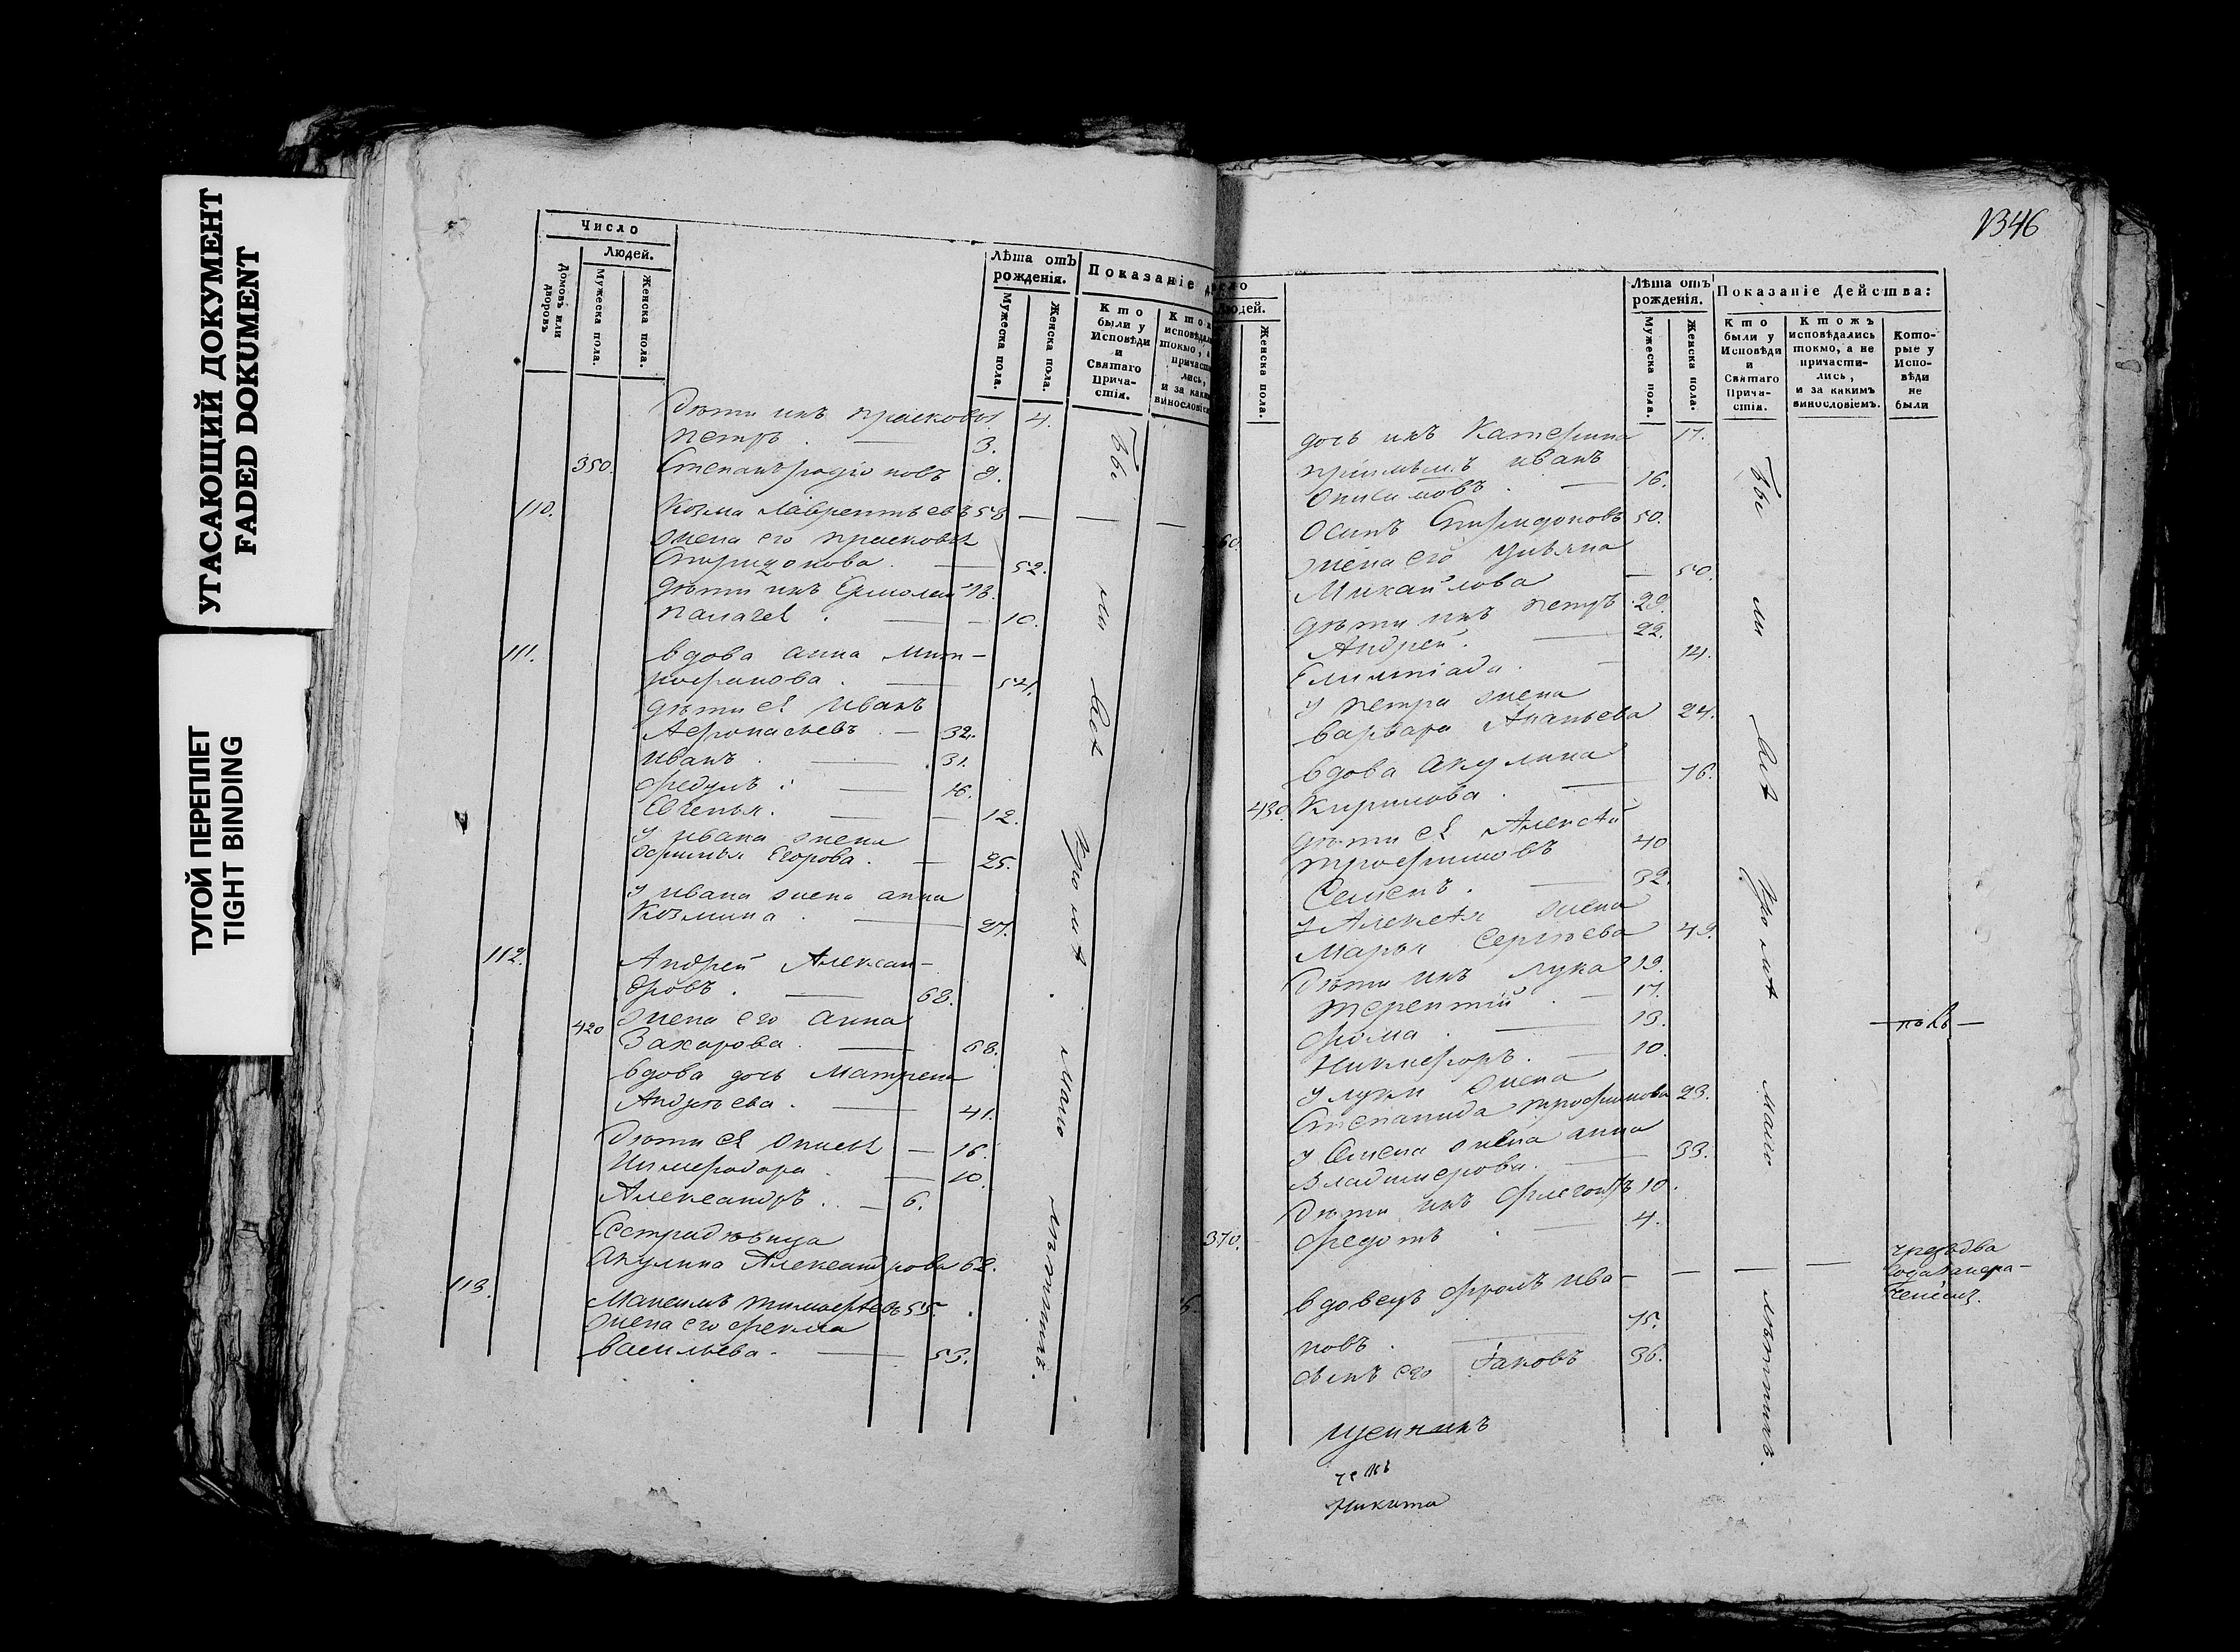 УГАСАЮЩИЙ ДОКУМЕНТ
FADED DOKUMENT
ТУГОЙ ПЕРЕПЛЕТ
TIGHT BINDING
Число
Людей.
Домовъ или дворовъ
Мужеска пола.
Женска пола.
Лѣта отъ рожденія.
Мужеска пола.
Женска пола.
Показаніе
Кто были у Исповѣди и Святаго Прича- стія.
дѣти ихъ прасковья 4.
петръ. — 3.
350. Степанъ родіоновъ 9.
110. Козма Лаврентьевъ 58 — — —
жена его прасковья
Спиридонова. — 52.
дѣти ихъ Ермолай 13.
палагея. — 10.
111. вдова анна Мит-
рофанова. — 54.
дѣти ея Иванъ
Афонасьевъ. — 32.
иванъ. — 31.
федулъ. — 16.
Евгенья. — 12.
у ивана жена
Афимья Егорова. — 25.
у ивана жена анна
Козмина. — 27.
112. Андрей Алексан-
дровъ. — 68.
жена его анна
420 Захарова. — 68.
вдова дочь Матрена
Андреева. — 41.
дѣти ея — 16.
— 10.
Александръ. — 6.
Сестра дѣвица
Акулина Александрова 62.
113. Максимъ тимофеевъ 55.
жена его фекла
васильева. — 53.
Бы ли всѣ Про мѣ мало лѣтнихъ.
1346
Людей.
Женска пола.
Лѣта отъ рожденія.
Мужеска пола.
Женска пола.
Показаніе Действа:
Кто были у Исповѣди и Святаго Прича- стія.
Ктожъ исповѣдались токмо, а не причасти- лись, и за какимъ винословіемъ.
Кото- рые у Испо- вѣди не были
дочь ихъ Катерина 17.
пріимышъ иванъ
Онисимовъ. — 16.
60. Осипъ Спиридоновъ 50.
жена его Ульяна
Михайлова — 50.
дѣти ихъ петръ 29.
Андрей. — 22.
— 14.
у петра жена
варвара Ананьева 24.
вдова Акулина
430. Кирилова. — 76.
дѣти ея Алексѣй
трофимовъ 40
Семенъ. — 32.
у Алексѣя жена
Марья Сергѣева 49.
дѣти ихъ лука 19.
терентій. — 17.
фома. — 13.
Никифоръ. — 10.
у луки жена
Степанида трофимова 23.
у Семена жена анна
Владимерова. — 33.
дѣти ихъ 10.
370. федотъ. — 4.
вдовецъ фролъ ива- — — — —
новъ. 75.
сынъ его Іаковъ 36.
Бы ли всѣ Про мѣ мало лѣтнихъ.
Никита